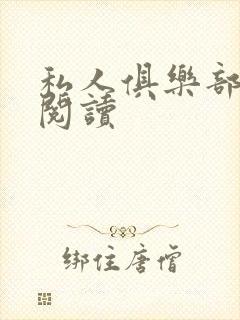 私人俱樂部
閱讀
綁住唐僧